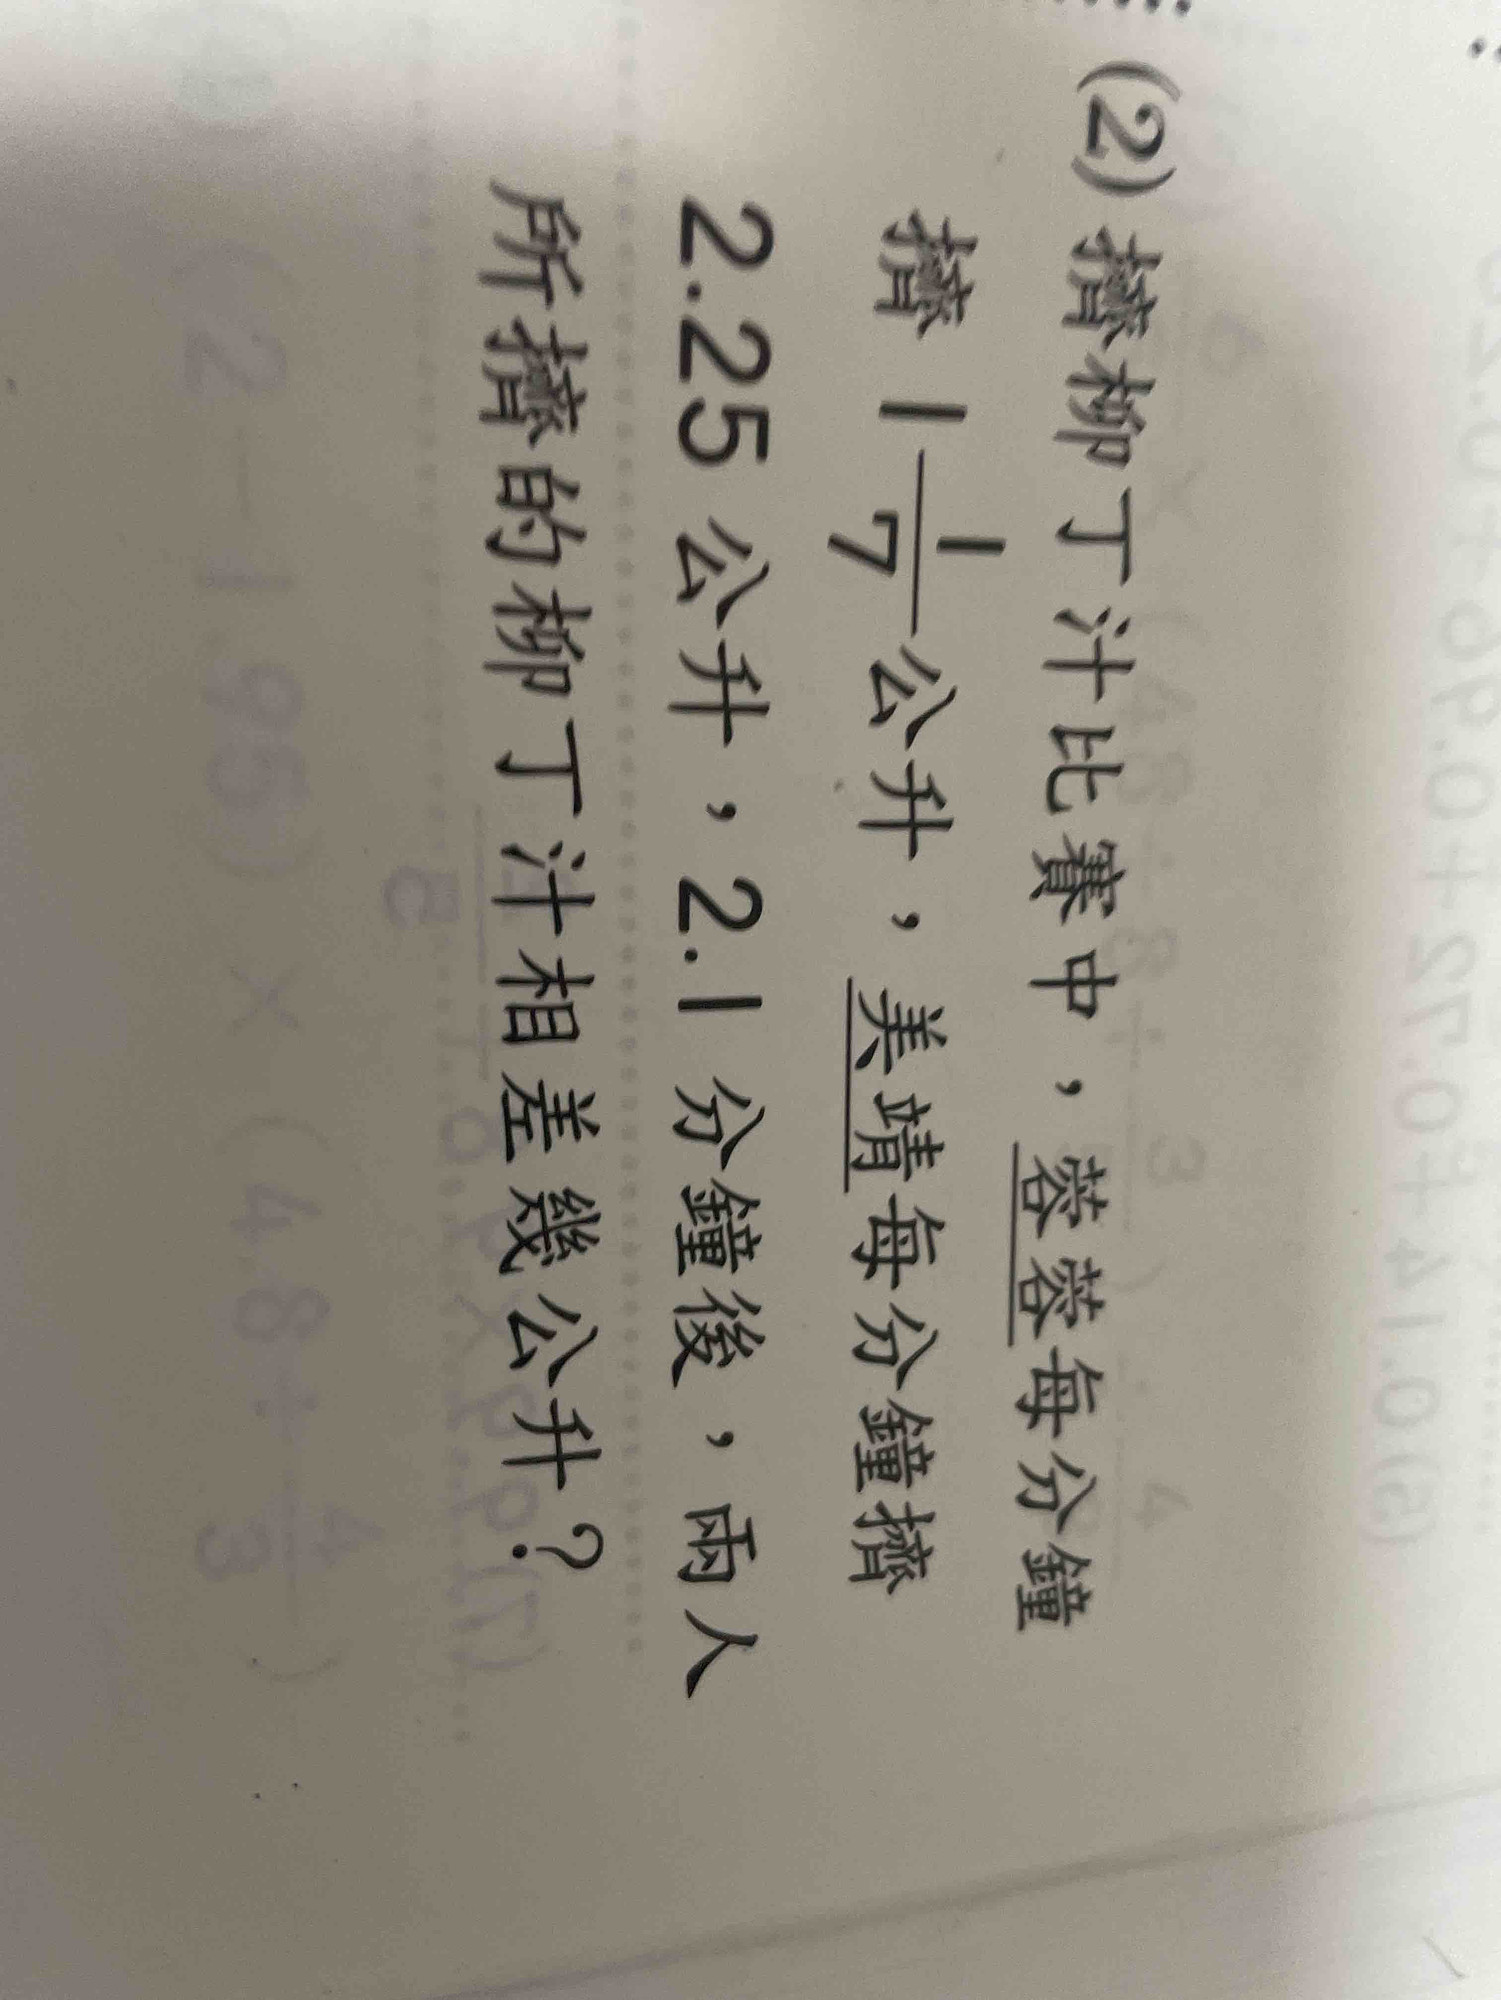 (2) 擠柳丁汁比賽中，蓉蓉每分鐘
擠 1 1/7 公升，美靖每分鐘擠
2.25 公升，2.1 分鐘後，兩人
所擠的柳丁汁相差幾公升？